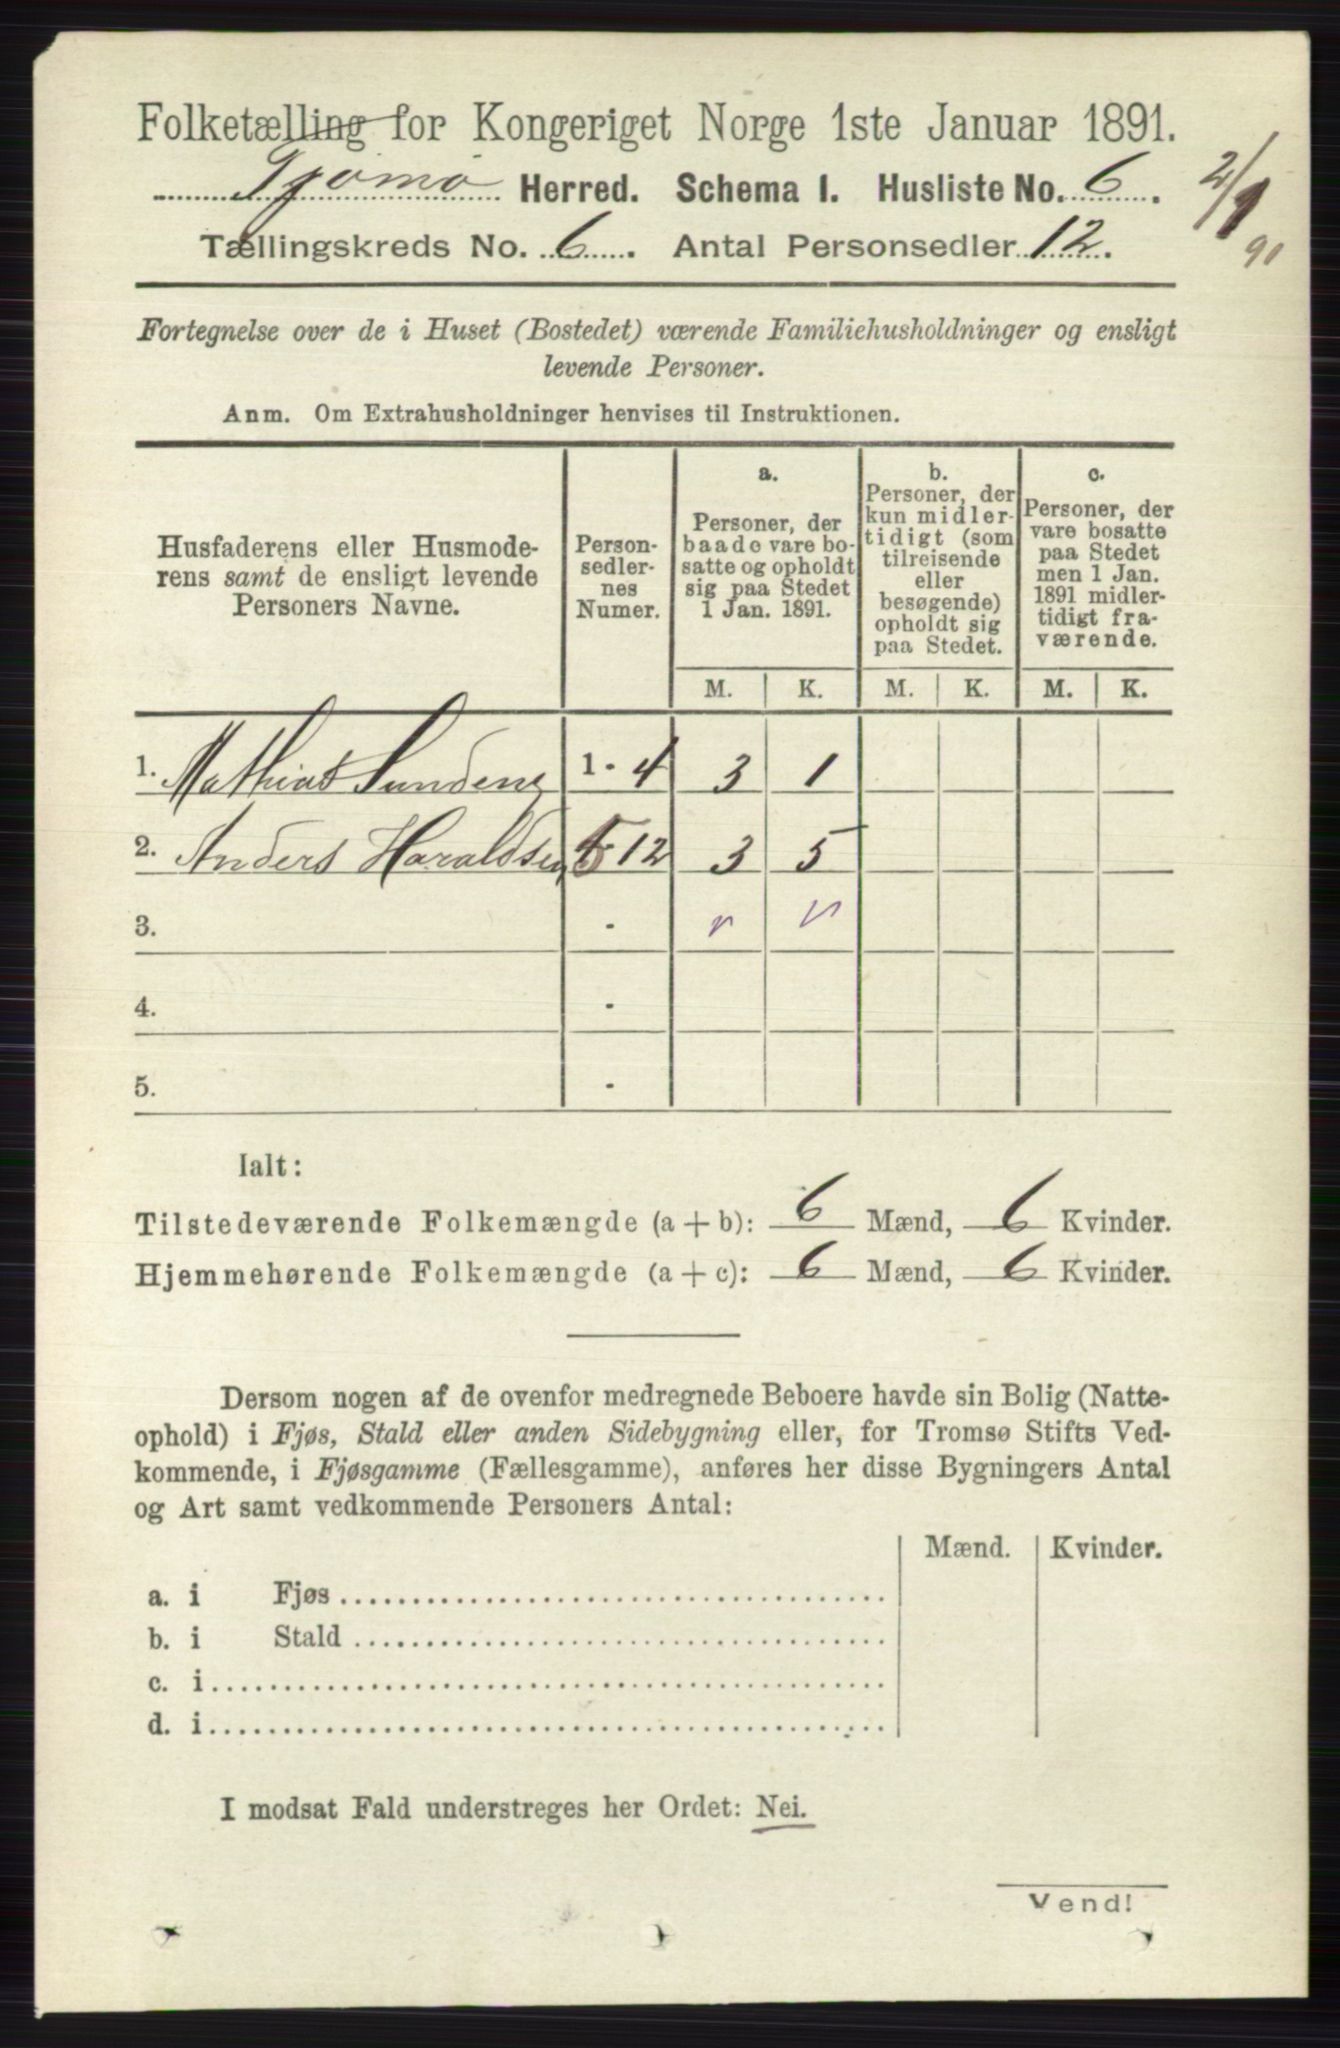 Folketælling for Kongeriget Norge 1ste Januar 1891.
Tjømø Herred. Schema 1. Husliste No. 6.
Tællingskreds No. 6. Antal Personsedler 12.
2/1
91
Fortegnelse over de i Huset (Bostedet) værende Familiehusholdninger og ensligt
levende Personer.
Anm. Om Extrahusholdninger henvises til Instruktionen.
Husfaderens eller Husmode-
rens samt de ensligt levende
Personers Navne.
Person-
sedler-
nes
Numer.
a.
Personer, der
baade vare bo-
satte og opholdt
sig paa Stedet
1 Jan. 1891.
b.
Personer, der
kun midler-
tidigt (som
tilreisende
eller
besøgende)
opholdt sig
paa Stedet.
c.
Personer, der
vare bosatte
paa Stedet
men 1 Jan.
1891 midler-
tidigt fra-
værende.
M. K. M. K. M. K.
1. Mathias Sundene 1 - 4 3 1
2. Anders Haraldsen 5 - 12 3 5
3. -
4. -
5. -
Ialt:
Tilstedeværende Folkemængde (a + b): 6 Mænd, 6 Kvinder.
Hjemmehørende Folkemængde (a + c): 6 Mænd, 6 Kvinder.
Dersom nogen af de ovenfor medregnede Beboere havde sin Bolig (Natte-
ophold) i Fjøs, Stald eller anden Sidebygning eller, for Tromsø Stifts Ved-
kommende, i Fjøsgamme (Fællesgamme), anføres her disse Bygningers Antal
og Art samt vedkommende Personers Antal:
Mænd. Kvinder.
a. i Fjøs
b. i Stald
c. i
d. i
I modsat Fald understreges her Ordet: Nei.
Vend!